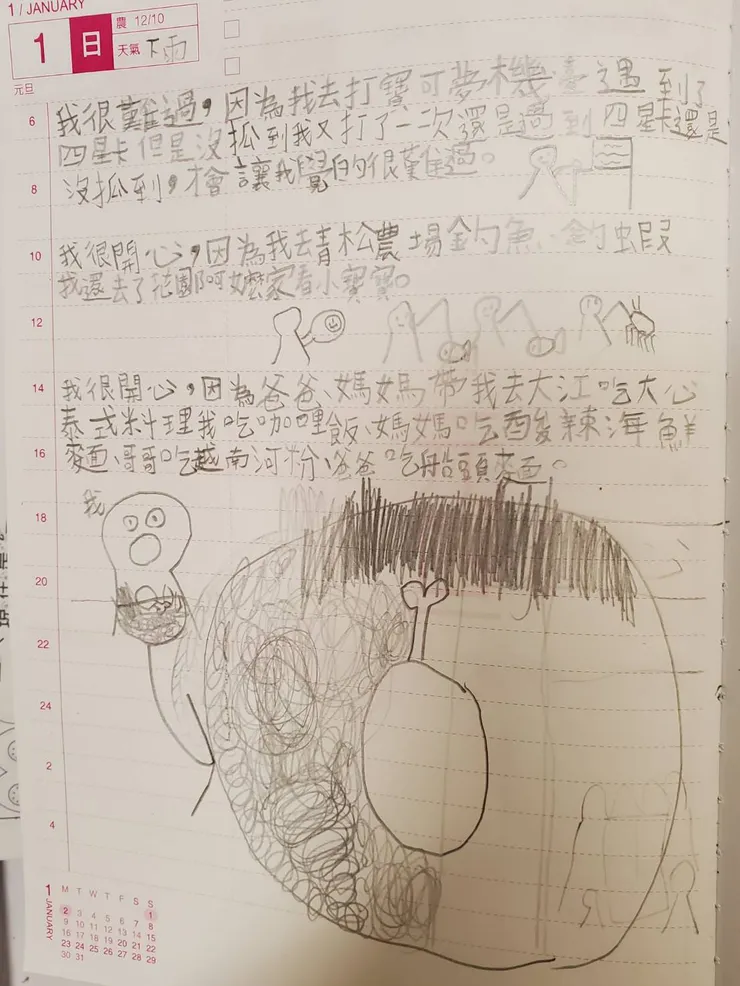 1 / JANUARY
1 日 農 12/10
天氣 下雨
元旦
6
我很難過，因為我去打寶可夢機臺遇到了
四星卡但是沒抓到我又打了一次還是遇到四星卡還是
8
沒抓到，才會讓我覺的很難過。
10
我很開心，因為我去青松農場釣魚、釣蝦
我還去了桃園阿嬤家看小寶寶。
12
14
我很開心，因為爸爸、媽媽帶我去大江吃大心
泰式料理我吃咖哩飯、媽媽吃酸辣海鮮
16
麵、哥哥吃越南河粉、爸爸吃船頭麵。
我
18
20
22
24
2
4
1 JANUARY
M T W T F S S
1
2 3 4 5 6 7 8
9 10 11 12 13 14 15
16 17 18 19 20 21 22
23 24 25 26 27 28 29
30 31